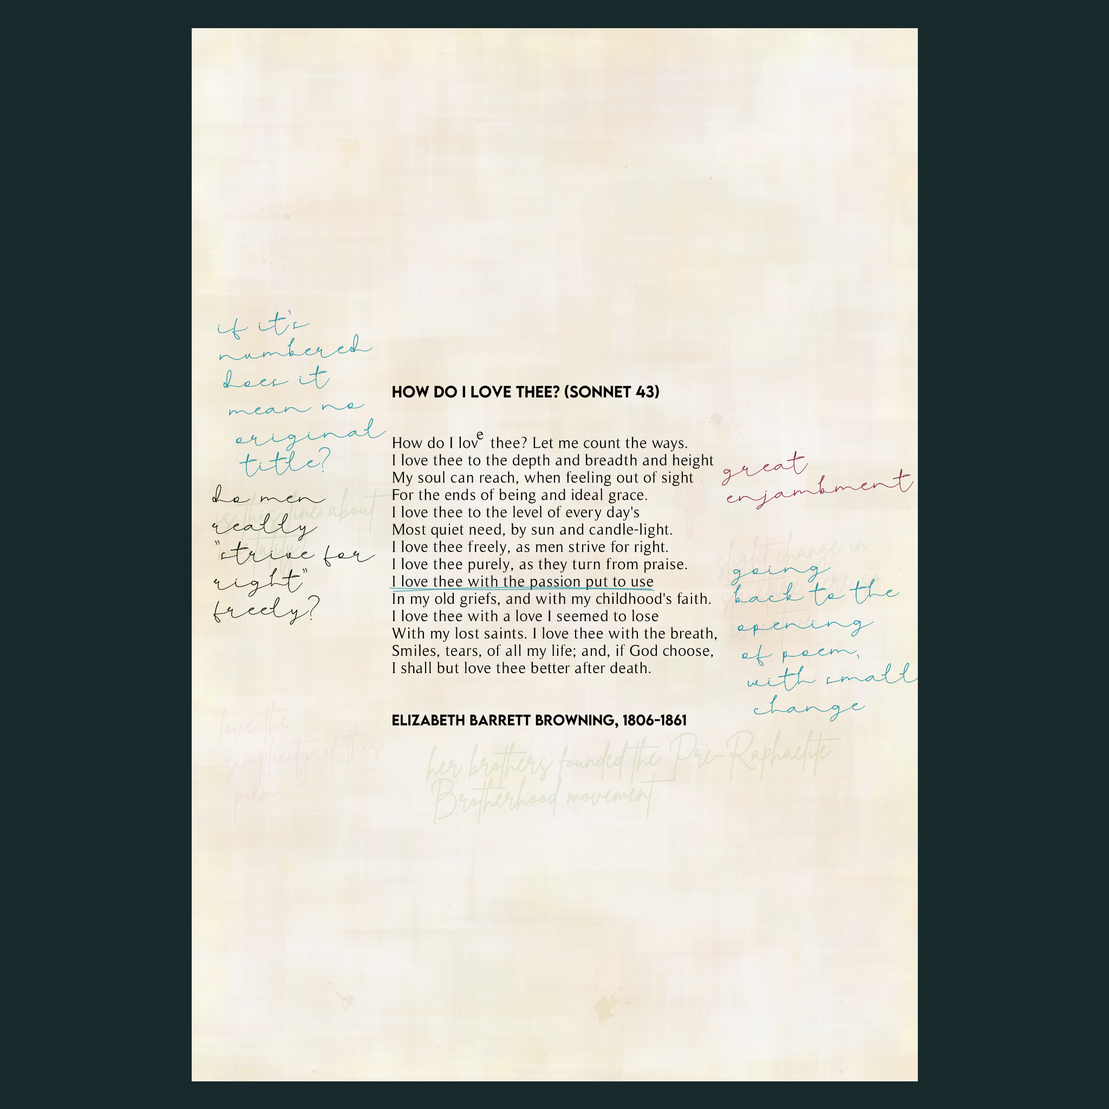 if it's
numbered
does it
mean no
original
title?
do men
really
"strive for
right"
freely?
HOW DO I LOVE THEE? (SONNET 43)
How do I love thee? Let me count the ways.
I love thee to the depth and breadth and height
My soul can reach, when feeling out of sight
For the ends of being and ideal grace.
I love thee to the level of every day's
Most quiet need, by sun and candle-light.
I love thee freely, as men strive for right.
I love thee purely, as they turn from praise.
I love thee with the passion put to use
In my old griefs, and with my childhood's faith.
I love thee with a love I seemed to lose
With my lost saints. I love thee with the breath,
Smiles, tears, of all my life; and, if God choose,
I shall but love thee better after death.
ELIZABETH BARRETT BROWNING, 1806-1861
great
enjambment
slight change in
going
back to the
opening
of poem,
with small
change
love the
simplicity of this
poem
her brothers founded the Pre-Raphaelite
Brotherhood movement